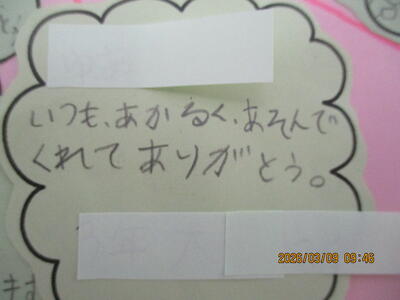 いつも、あかるく、あそんで
くれてありがとう。
2026/03/09 09:46